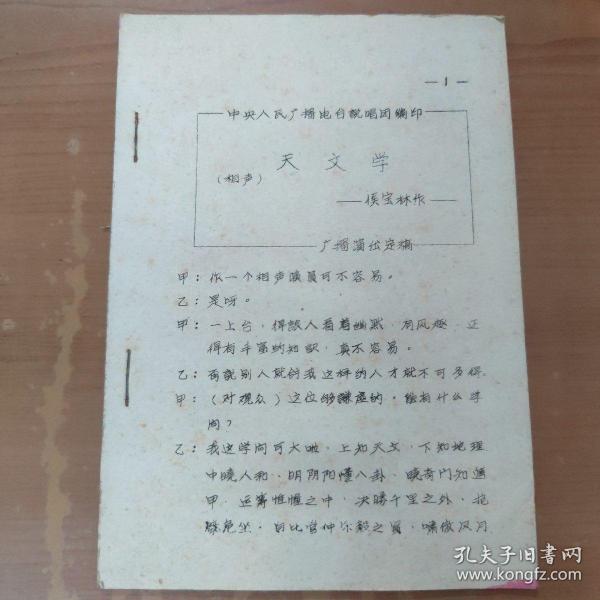 —1—
中央人民广播电台说唱团编印
天文学
(相声)
——侯宝林作——
广播演出定稿
甲：作一个相声演员可不容易。
乙：是呀。
甲：一上台，得让人看着幽默，有风趣，还
得有丰富的知识，真不容易。
乙：再说别人就何我这样的人才就不可多得。
甲：(对观众)这位够谦虚的，能有什么学
问？
乙：我这学问可大啦，上知天文，下知地理
中晓人和，明阴阳懂八卦，晓奇门知遁
甲，运筹帷幄之中，决胜千里之外，抱
膝危坐，自比管仲乐毅之贤，啸傲风月
孔夫子旧书网
www.kongfz.com